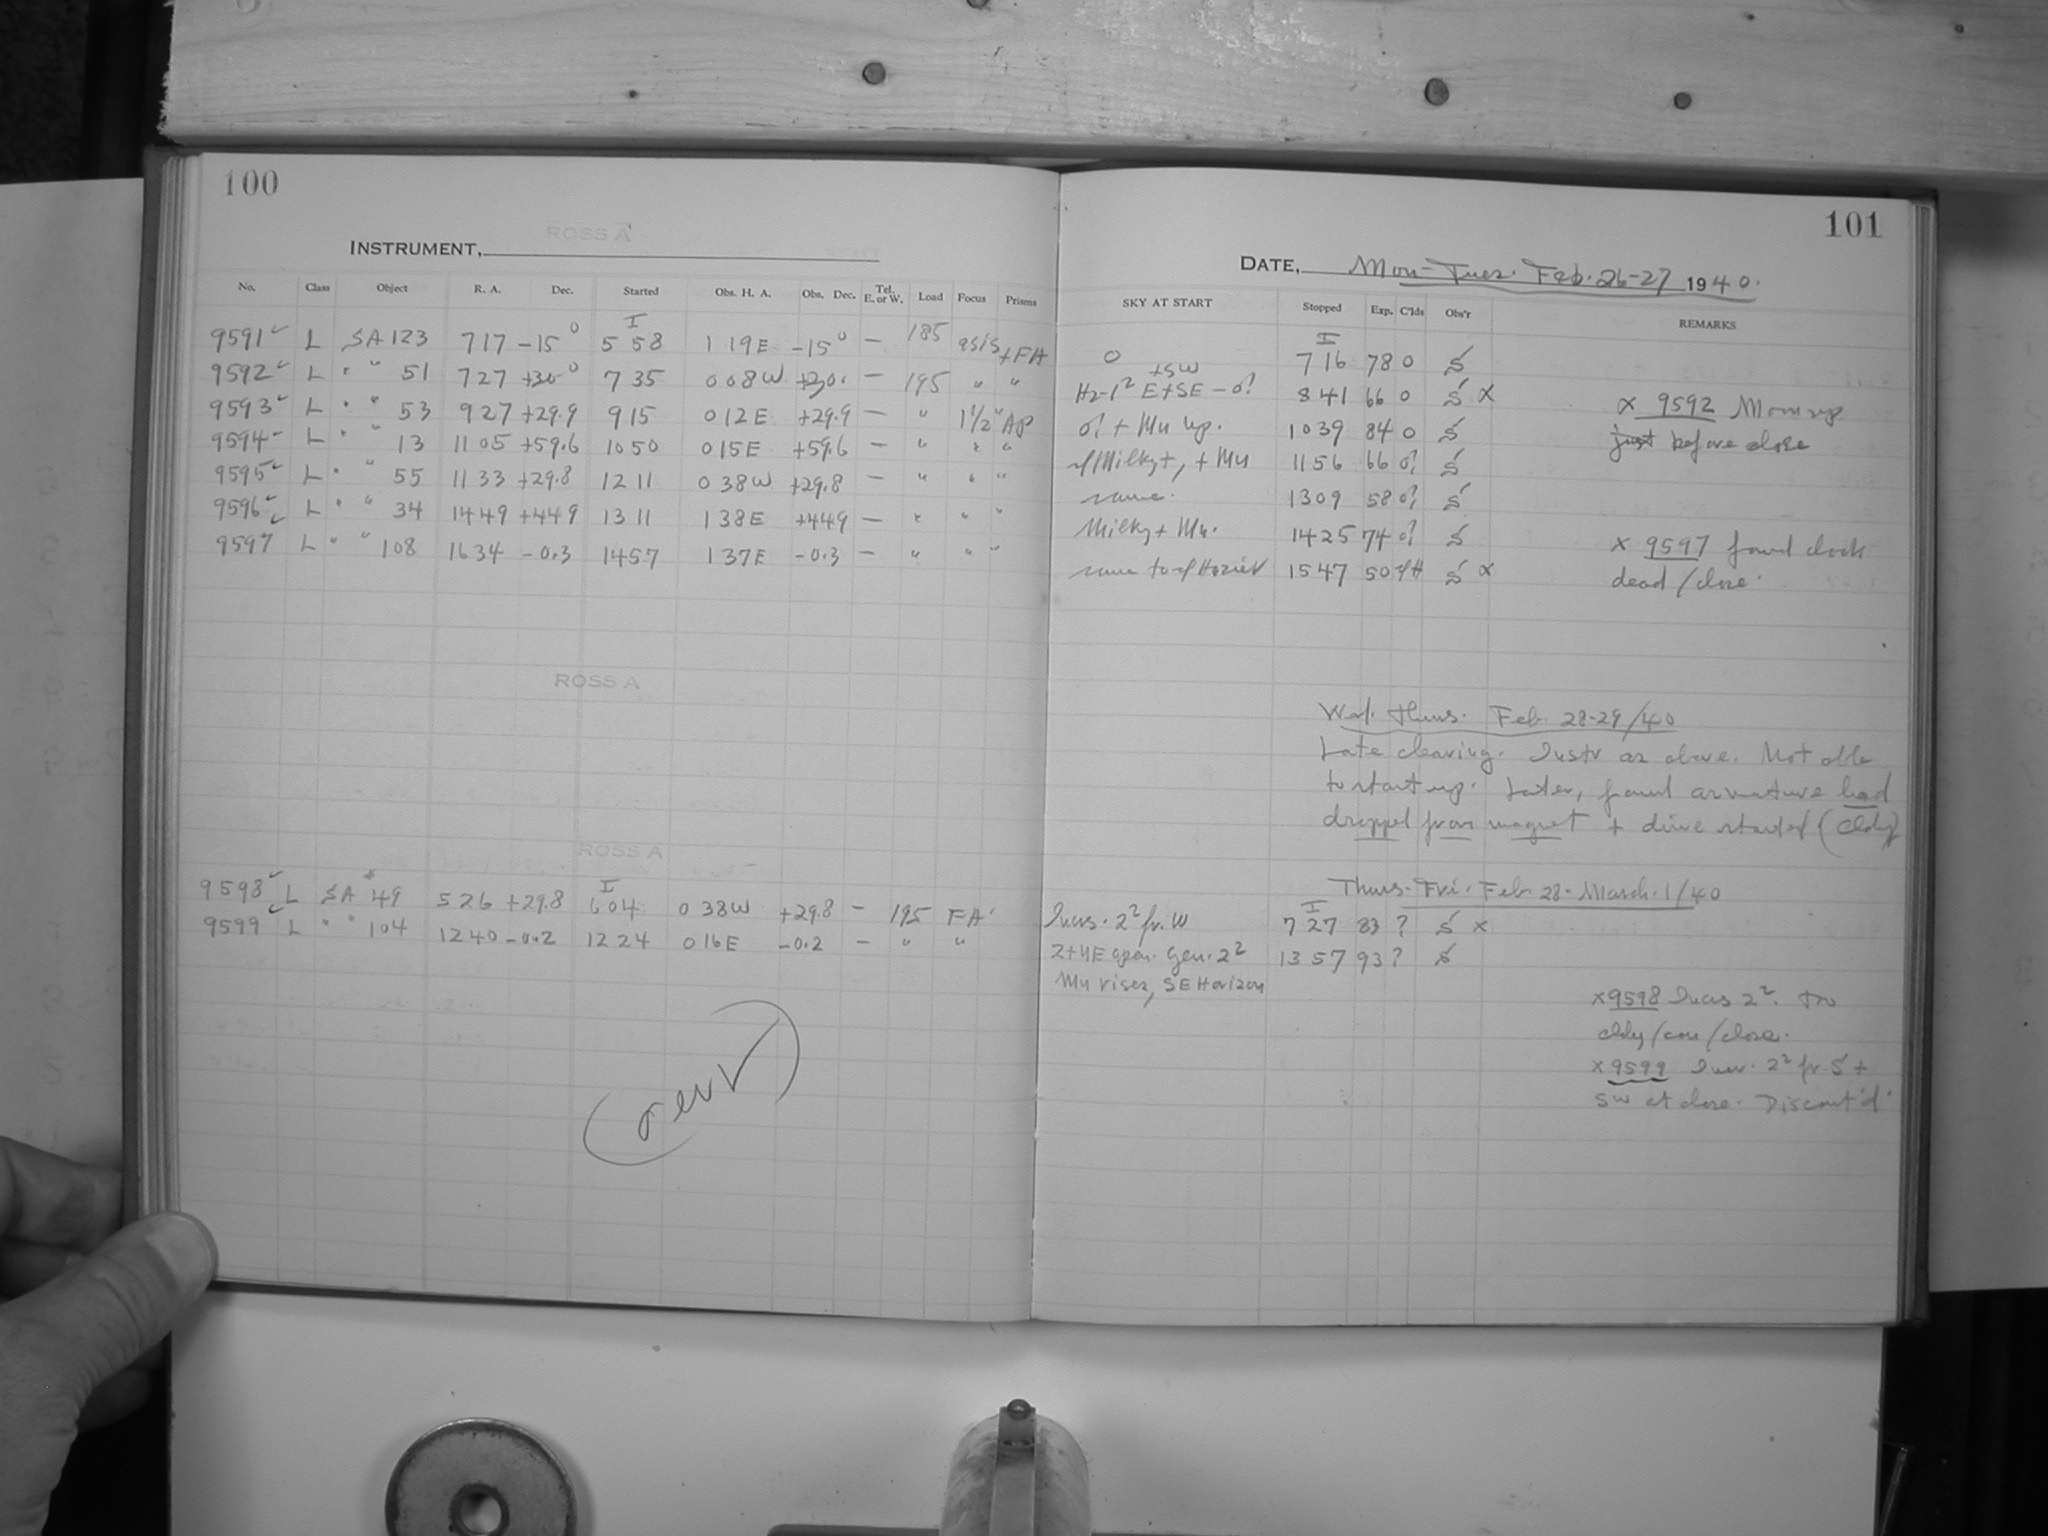 100
ROSS A
INSTRUMENT,
No. Class Object R. A. Dec. Started Obs. H. A. Obs. Dec. Tel. E. or W. Load Focus Prisms
9591 ✓ L SA 123 7 17 -15° I 5 58 1 19 E -15° — 185 as is + FA
9592 ✓ L " " 51 7 27 +30° 7 35 0 08 W +30. — 195 " "
9593 ✓ L " " 53 9 27 +29.9 9 15 0 12 E +29.9 — " 1 1/2" AP
9594 ✓ L " " 13 11 05 +59.6 10 50 0 15 E +59.6 — " " "
9595 ✓ L " " 55 11 33 +29.8 12 11 0 38 W +29.8 — " " "
9596 ✓ L " " 34 14 49 +44.9 13 11 1 38 E +44.9 — " " "
9597 ✓ L " " 108 16 34 -0.3 14 57 1 37 E -0.3 — " " "
ROSS A
ROSS A
9598 ✓ L SA 49 5 26 +29.8 I 6 04 0 38 W +29.8 — 195 FA
9599 ✓ L " " 104 12 40 -0.2 12 24 0 16 E -0.2 — " "
(over)
101
DATE, Mon-Tues. Feb. 26-27 1940.
SKY AT START Stopped Exp. C'lds Obs'r REMARKS
0 I 7 16 78 0 S
+SW
Hz-1² E+SE - 0? 8 41 66 0 S x
0? + Mn up. 10 39 84 0 S
Milky+, + Mn 11 56 66 0? S
same. 13 09 58 0? S
Milky + Mn. 14 25 74 0? S
same to Horiz 15 47 50 H S x
x 9592 Moon up
just before close
x 9597 found clock
dead / close.
Wed. Thurs. Feb. 28-29/40
Late clearing. Instr as above. Not able
to start up. Later, found armature had
dropped from magnet + drive started (Cldy)
Thurs-Fri. Feb 28-March 1/40
Incrs. 2² fr. W I 7 27 83 ? S x
Z+NE open. Gen. 2² 13 57 93 ? S
Mn rises, SE Horizon
x 9598 Incrs 2². too
cldy / con / close.
x 9599 Incr. 2² fr. S +
SW at close. Discont'd